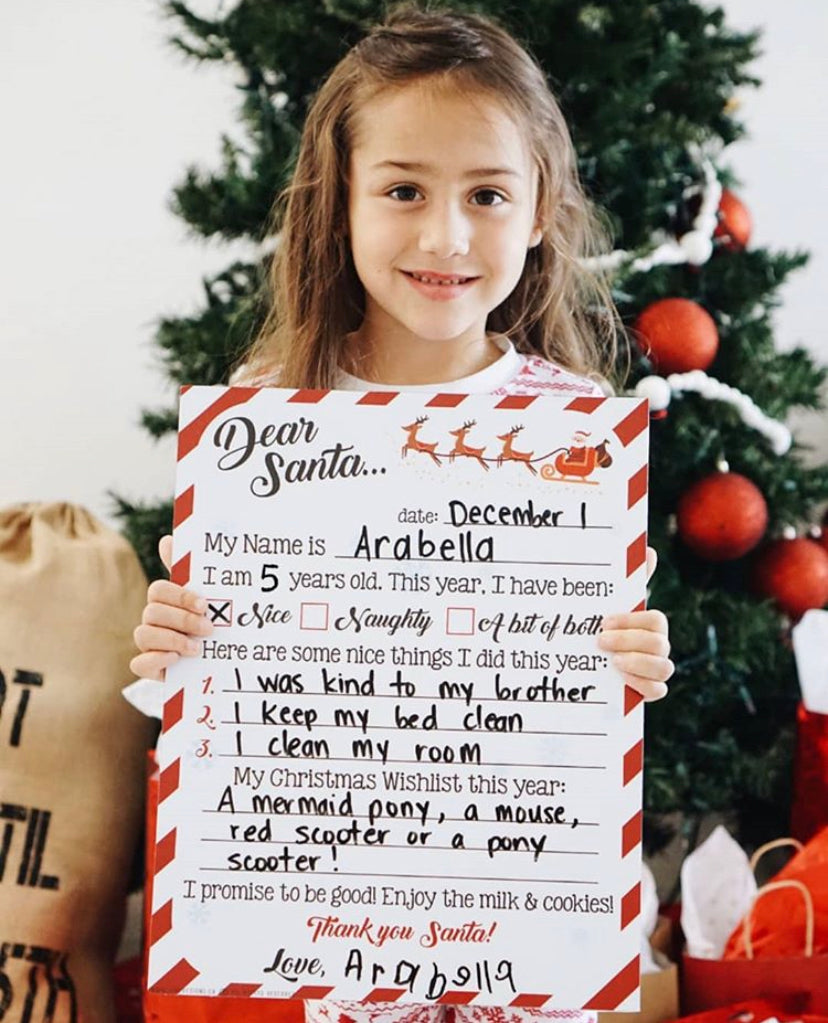 Dear
Santa...
date: December 1
My Name is Arabella
I am 5 years old. This year, I have been:
X Nice Naughty A bit of both.
Here are some nice things I did this year:
1. I was kind to my brother
2. I keep my bed clean
3. I clean my room
My Christmas Wishlist this year:
A mermaid pony, a mouse,
red scooter or a pony
scooter!
I promise to be good! Enjoy the milk & cookies!
Thank you Santa!
Love, Arabella